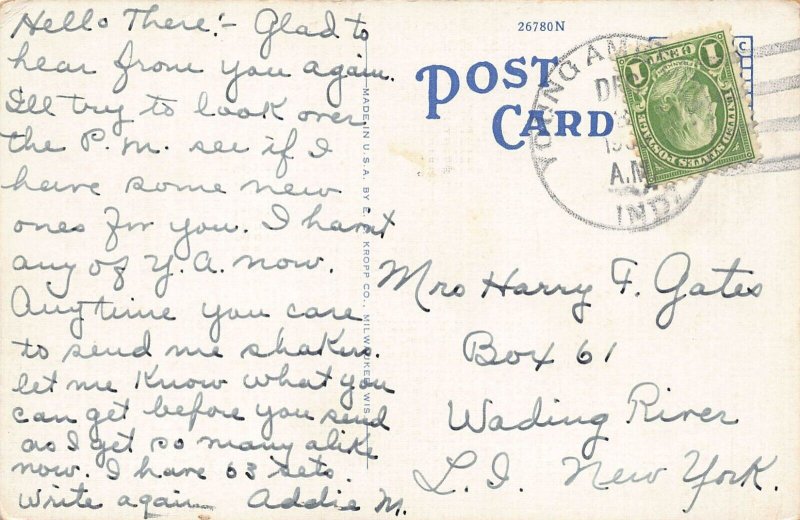 Hello There:- Glad to
hear from you again.
I'll try to look over
the P.M. see if I
have some new
ones for you. I harnt
any of Y.A. now.
Anytime you care
to send me shakers.
let me know what you
can get before you send
as I get so many alike
now. I have 63 sets.
Write again Addie M.
MADE IN U.S.A. BY E. KROPP CO., MILWAUKEE, WIS.
26780N
POST
CARD
YOUNG AMERICA
A.M.
IND.
1 CENT 1
UNITED STATES POSTAGE
Mrs Harry F. Gates
Box 61
Wading River
L. I. New York.